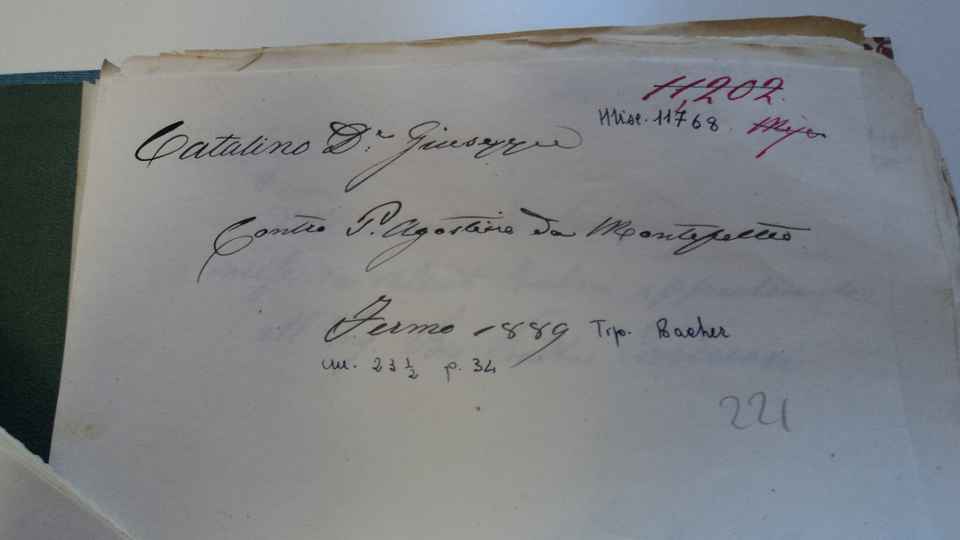 11,202.
Misc. 11768.
Catalino D.r Giuseppe
Contro P. Agostino da Montefeltro
Fermo 1889 Tip. Bacher
cm. 23 1/2 p. 34
221